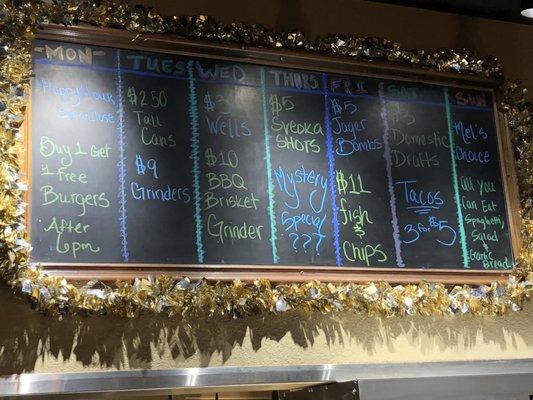 -MON-
Happy Hour
5pm-Close
Buy 1 get
1 free
Burgers
After
6pm
TUES
$2.50
Tall
Cans
$9
Grinders
WED
$3
Wells
$10
BBQ
Brisket
Grinder
THURS
$5
Svedka
SHOTS
Mystery
Special
???
FRI
$5
Jager
Bombs
$11
fish
&
Chips
SAT
$3
Domestic
Drafts
Tacos
3 for $5
SUN
Mel's
Choice
All you
Can Eat
Spaghetti,
Salad &
Garlic Bread